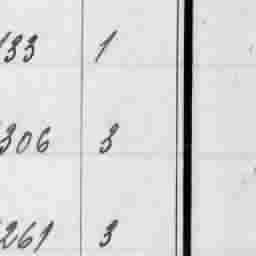 133 1
306 3
261 3